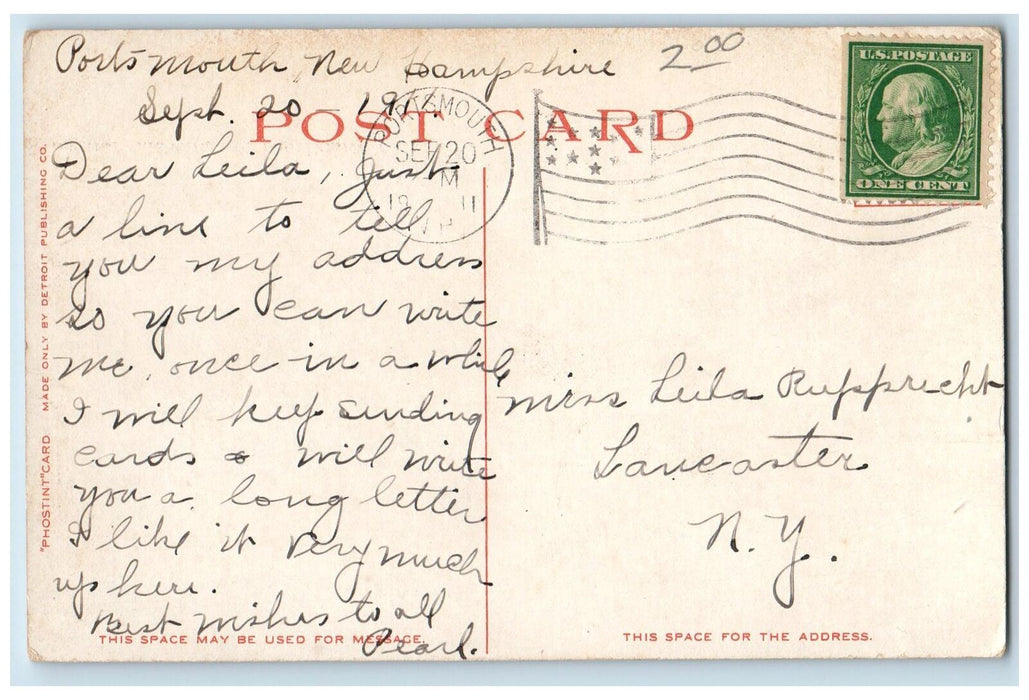 Portsmouth, New Hampshire 2.00
Sept. 20 1911.
POST CARD
PORTSMOUTH
SEP 20
M
19 11
N.H.
U.S. POSTAGE
ONE CENT
Dear Leila, Just
a line to tell
you my address
so you can write
me, once in a while
I will keep sending
cards & will write
you a long letter
I like it very much
up here.
Best wishes to all
Pearl.
Miss Leila Rupprecht
Lancaster
N.Y.
"PHOSTINT" CARD MADE ONLY BY DETROIT PUBLISHING CO.
THIS SPACE MAY BE USED FOR MESSAGE.
THIS SPACE FOR THE ADDRESS.